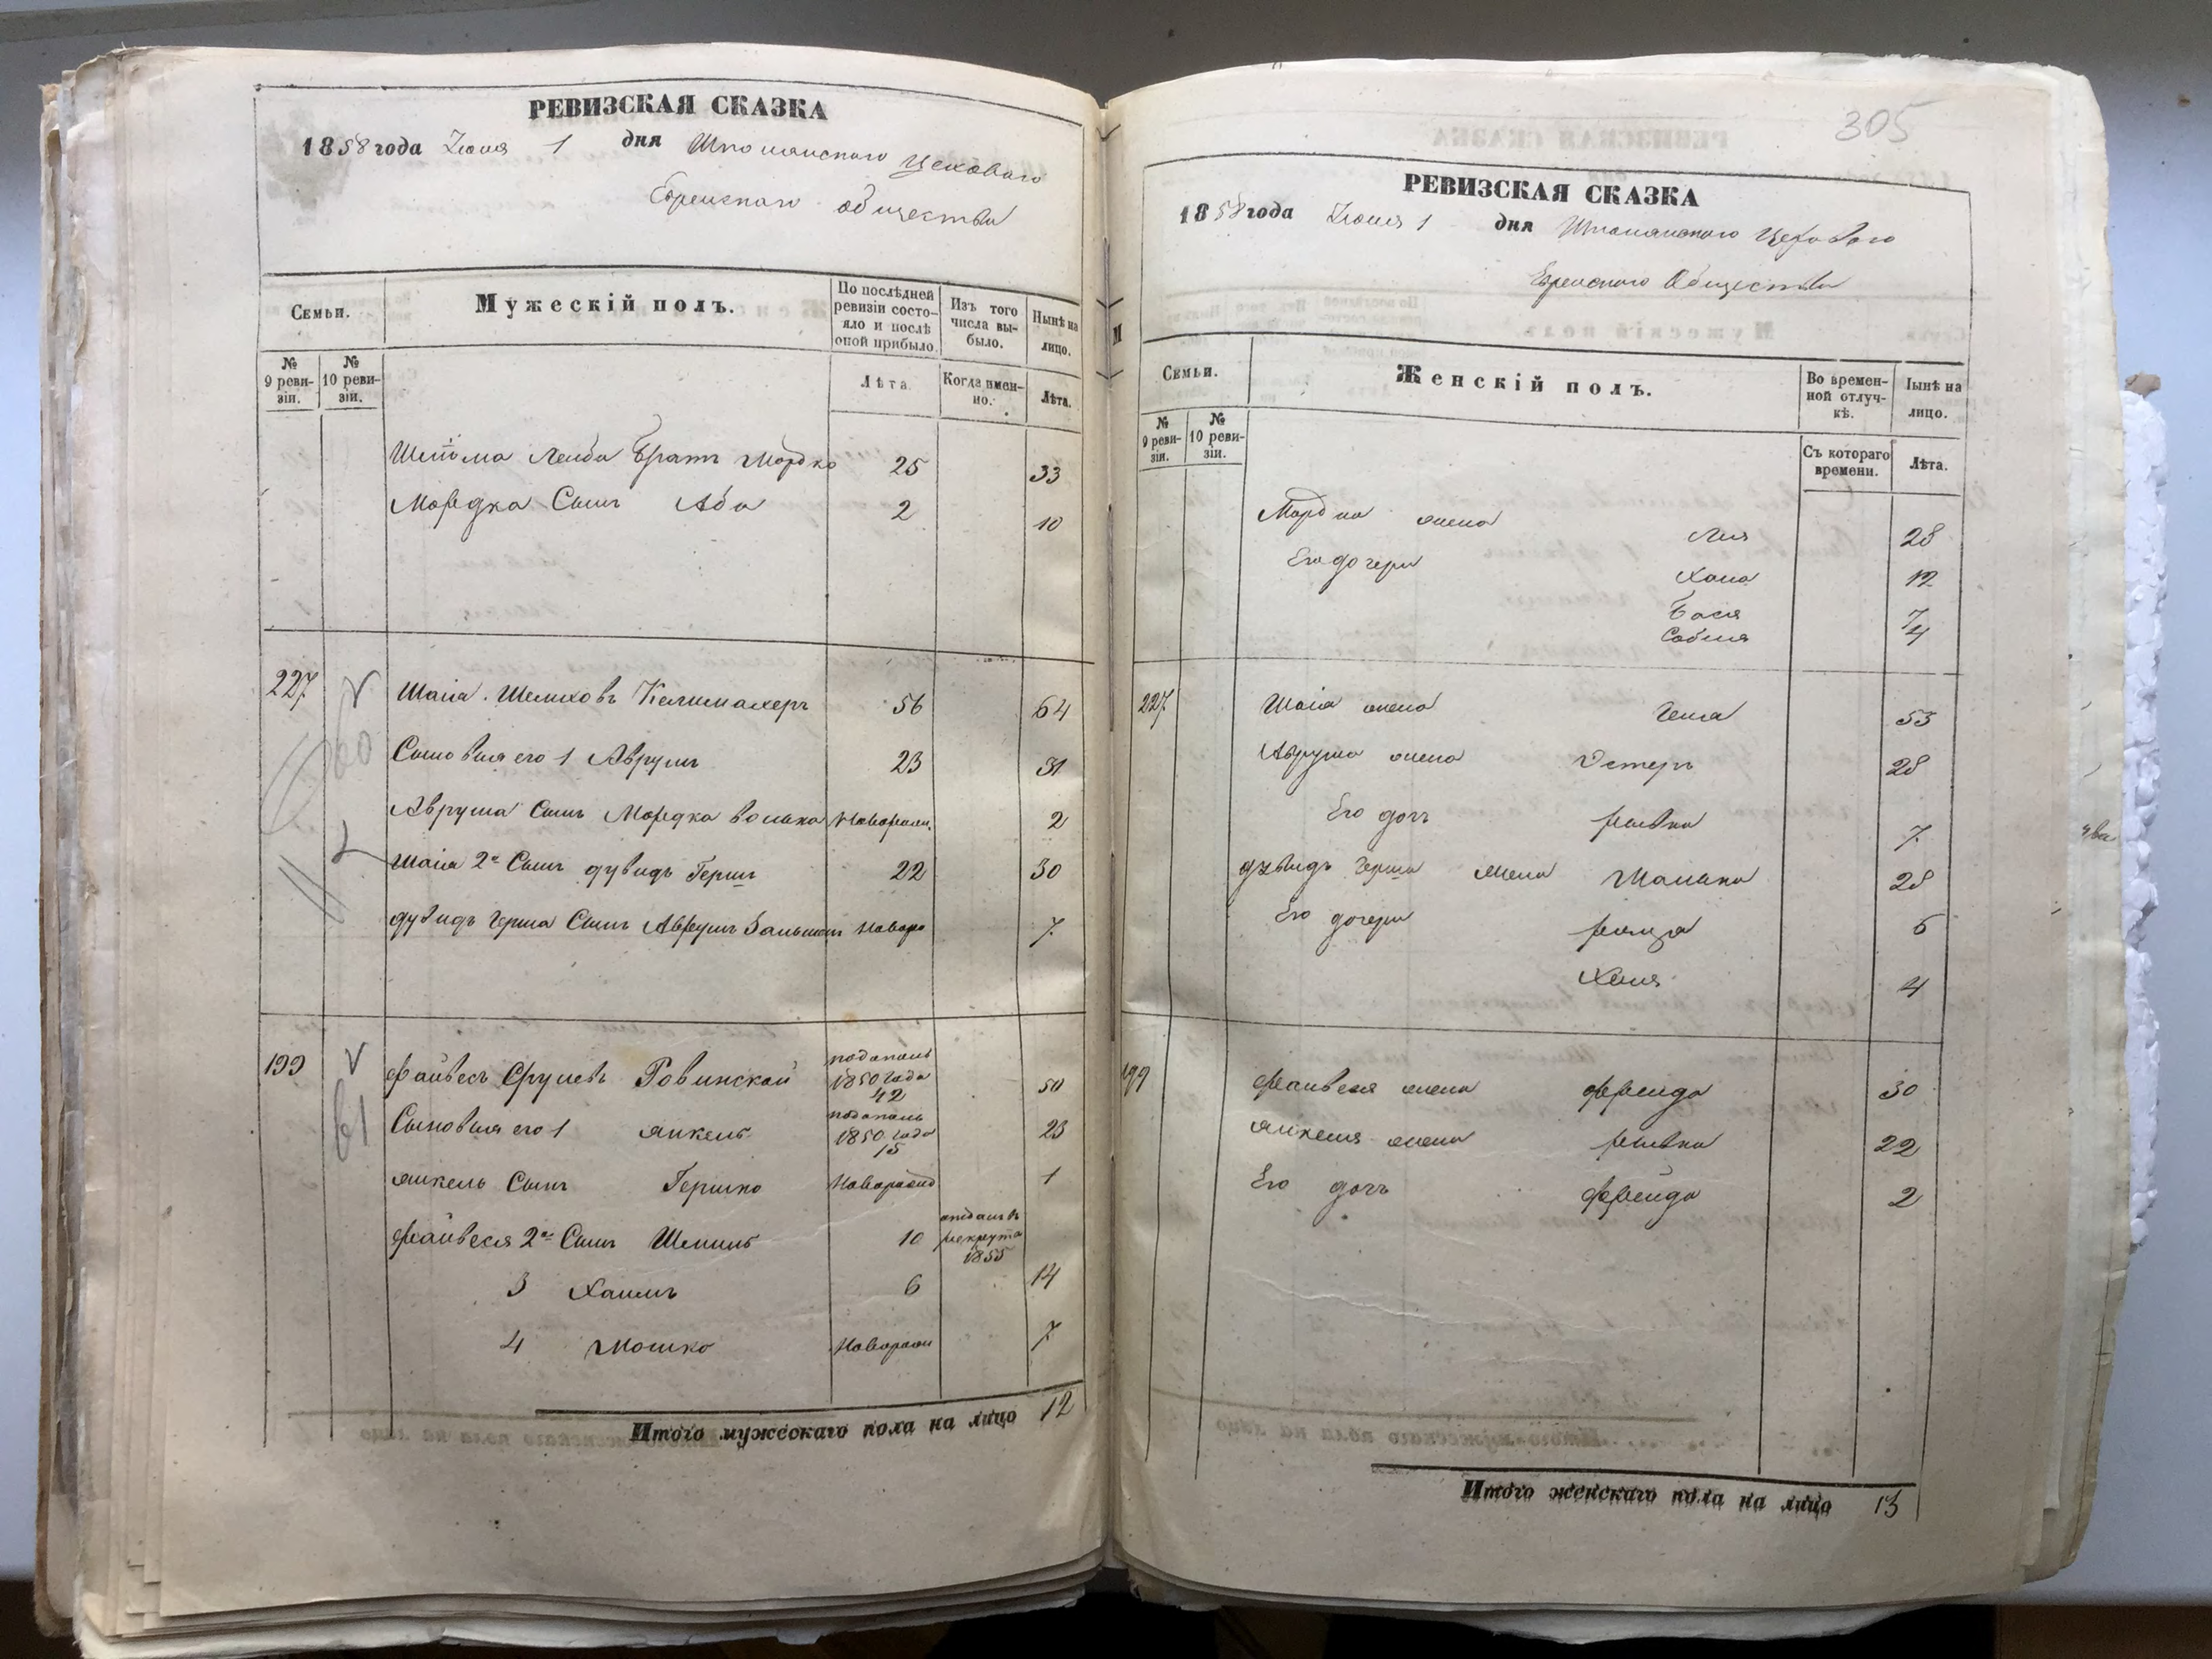 РЕВИЗСКАЯ СКАЗКА
1858 года Июня 1 дня Шполянского Цеховаго
Еврейскаго общества
Семьи.
Мужескій полъ.
По послѣдней ревизіи состояло и послѣ оной прибыло.
Изъ того числа выбыло.
Нынѣ на лицо.
№ 9 ревизіи.
№ 10 ревизіи.
Лѣта
Когда именно.
Лѣта.
Лейба Братъ Мордко 25 33
Мордка Сынъ Аба 2 10
227 Шаія Шелиховъ 56 64
60
Сыновья его 1 Аврумъ 23 31
Аврума Сынъ Мордка Волько Новорожд. 2
Шаія 2й Сынъ Дувидъ Гершъ 22 30
Дувидъ Герша Сынъ Аврумъ Зальман Новоро 7
199 Файвесъ Срулевъ Ровинской подопась 1850 года 42 50
61
Сыновья его 1 Янкель подопась 1850 года 15 23
Янкель Сынъ Гершко Новорожд 1
Файвеся 2й Сынъ 10 отданъ в рекрута 1855
3 Хаимъ 6 14
4 Мошко Новорож 7
Итого мужескаго пола на лицо 12
305
РЕВИЗСКАЯ СКАЗКА
1858 года Июня 1 дня Шполянского Цехового
Еврейского Общества
Семьи.
Женскій полъ.
Во временной отлучкѣ.
Нынѣ на лицо.
№ 9 ревизіи.
№ 10 ревизіи.
Съ котораго времени.
Лѣта.
Мордка жена Лея 28
Его дочери Хана 12
Бася 7
4
227 Шаія жена Геня 53
Аврума жена Эстеръ 28
Его дочь Ривка 7
Дувидъ Герша жена 28
Его дочери 6
Хая 4
199 Файвеся жена Фрейда 30
Янкеля жена Ривка 22
Его дочь Фрейда 2
Итого женскаго пола на лицо 13